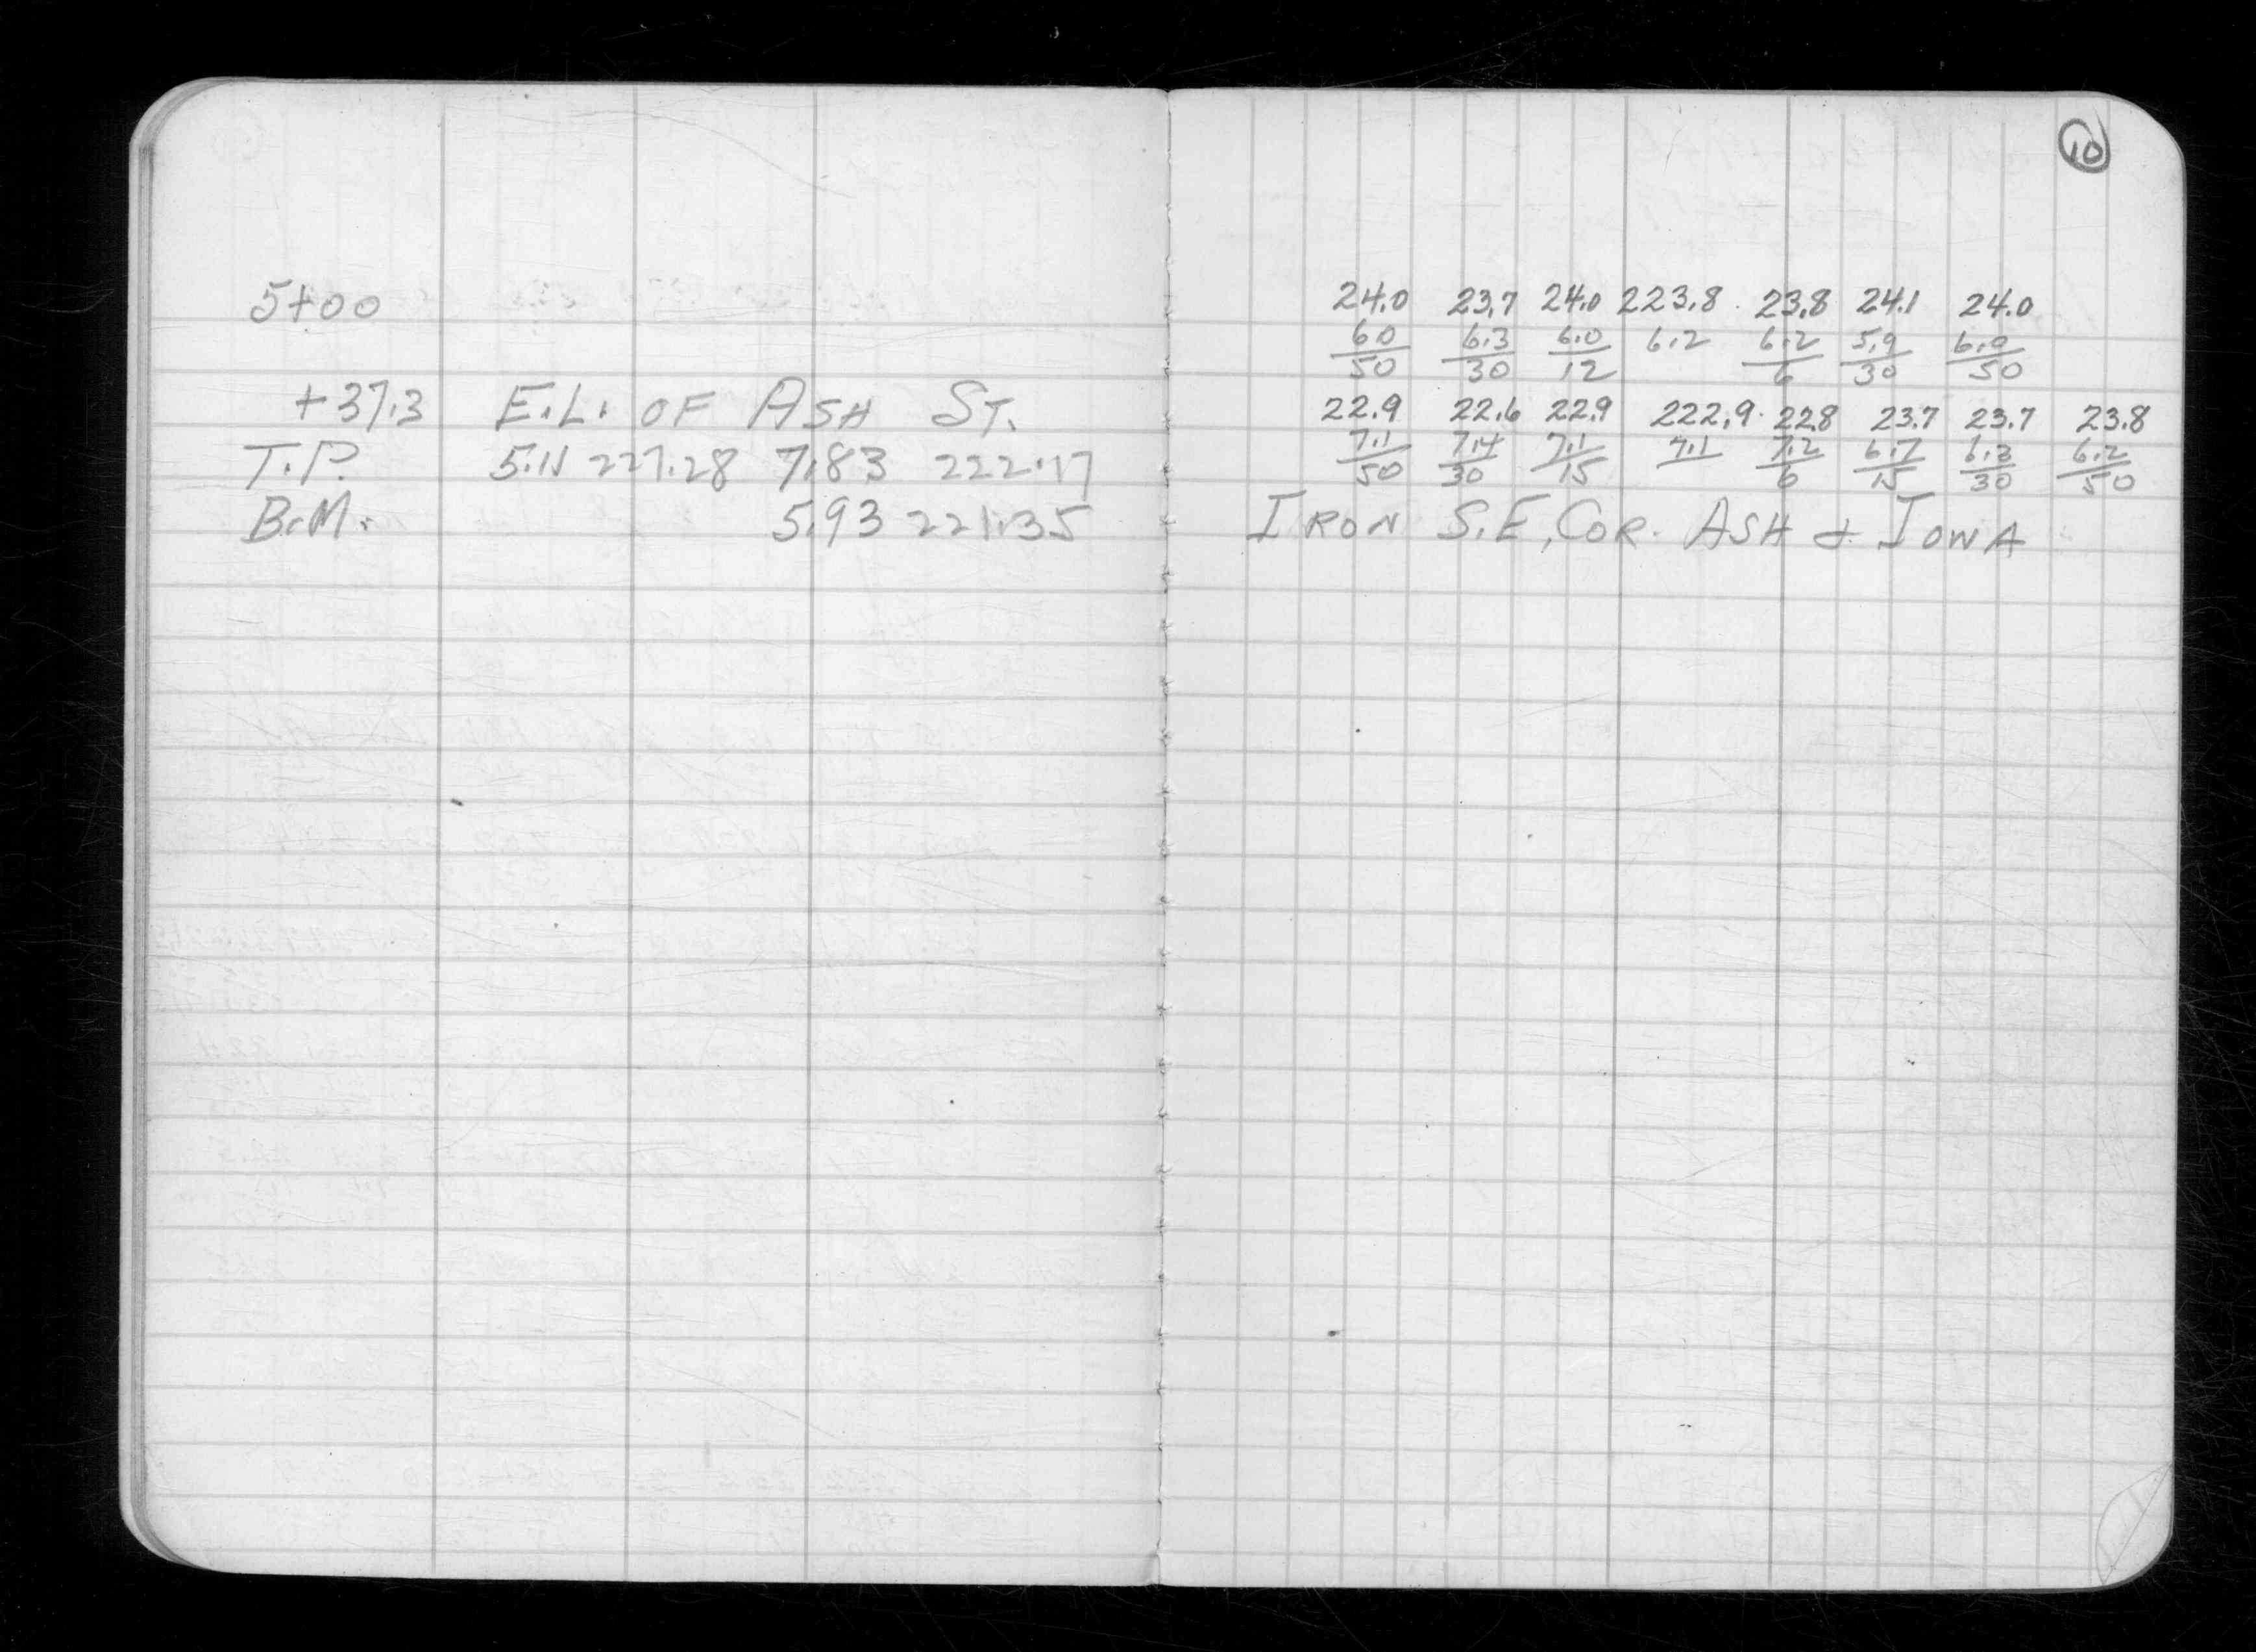 10
5+00 24.0 23.7 24.0 223.8 23.8 24.1 24.0
6.0 6.3 6.0 6.2 6.2 5.9 6.0
50 30 12 6 30 50
+37.3 E.L. OF ASH ST. 22.9 22.6 22.9 222.9 22.8 23.7 23.7 23.8
T.P. 5.11 227.28 7.83 222.17 7.1 7.4 7.1 7.1 7.2 6.7 6.3 6.2
50 30 15 6 15 30 50
B.M. 5.93 221.35 IRON S.E. COR. ASH & IOWA